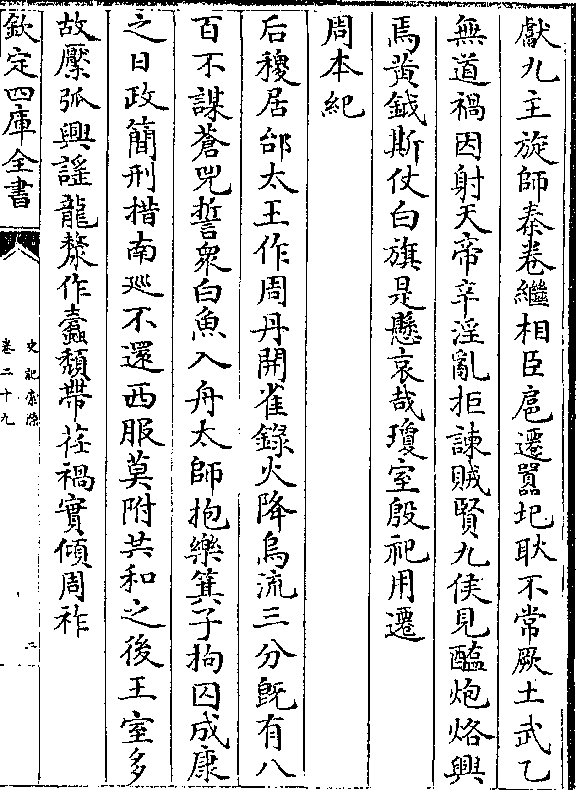 獻九主旋師泰卷繼相臣扈遷囂圮耿不常厥土武乙
無道禍因射天帝辛淫亂拒諫賊賢九侯見醢炮烙興
焉黄鉞斯仗白旗是懸哀哉瓊室殷祀用遷
周本紀
后稷居邰太王作周丹開雀錄火降烏流三分旣有八
百不謀蒼兕誓衆白魚入舟太師抱樂箕子拘囚成康
之日政簡刑措南廵不還西服莫附共和之後王室多
故檿弧興謡龍漦作蠧頽帶荏禍實傾周祚
欽定四庫全書
史記索隱
卷二十九
二